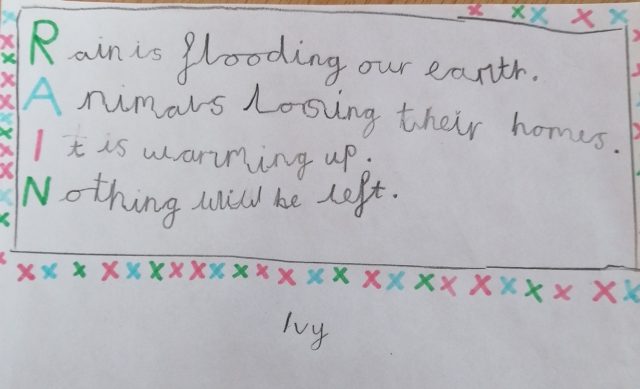 Rain is flooding our earth.
Animals loosing their homes.
It is warming up.
Nothing will be left.
Ivy